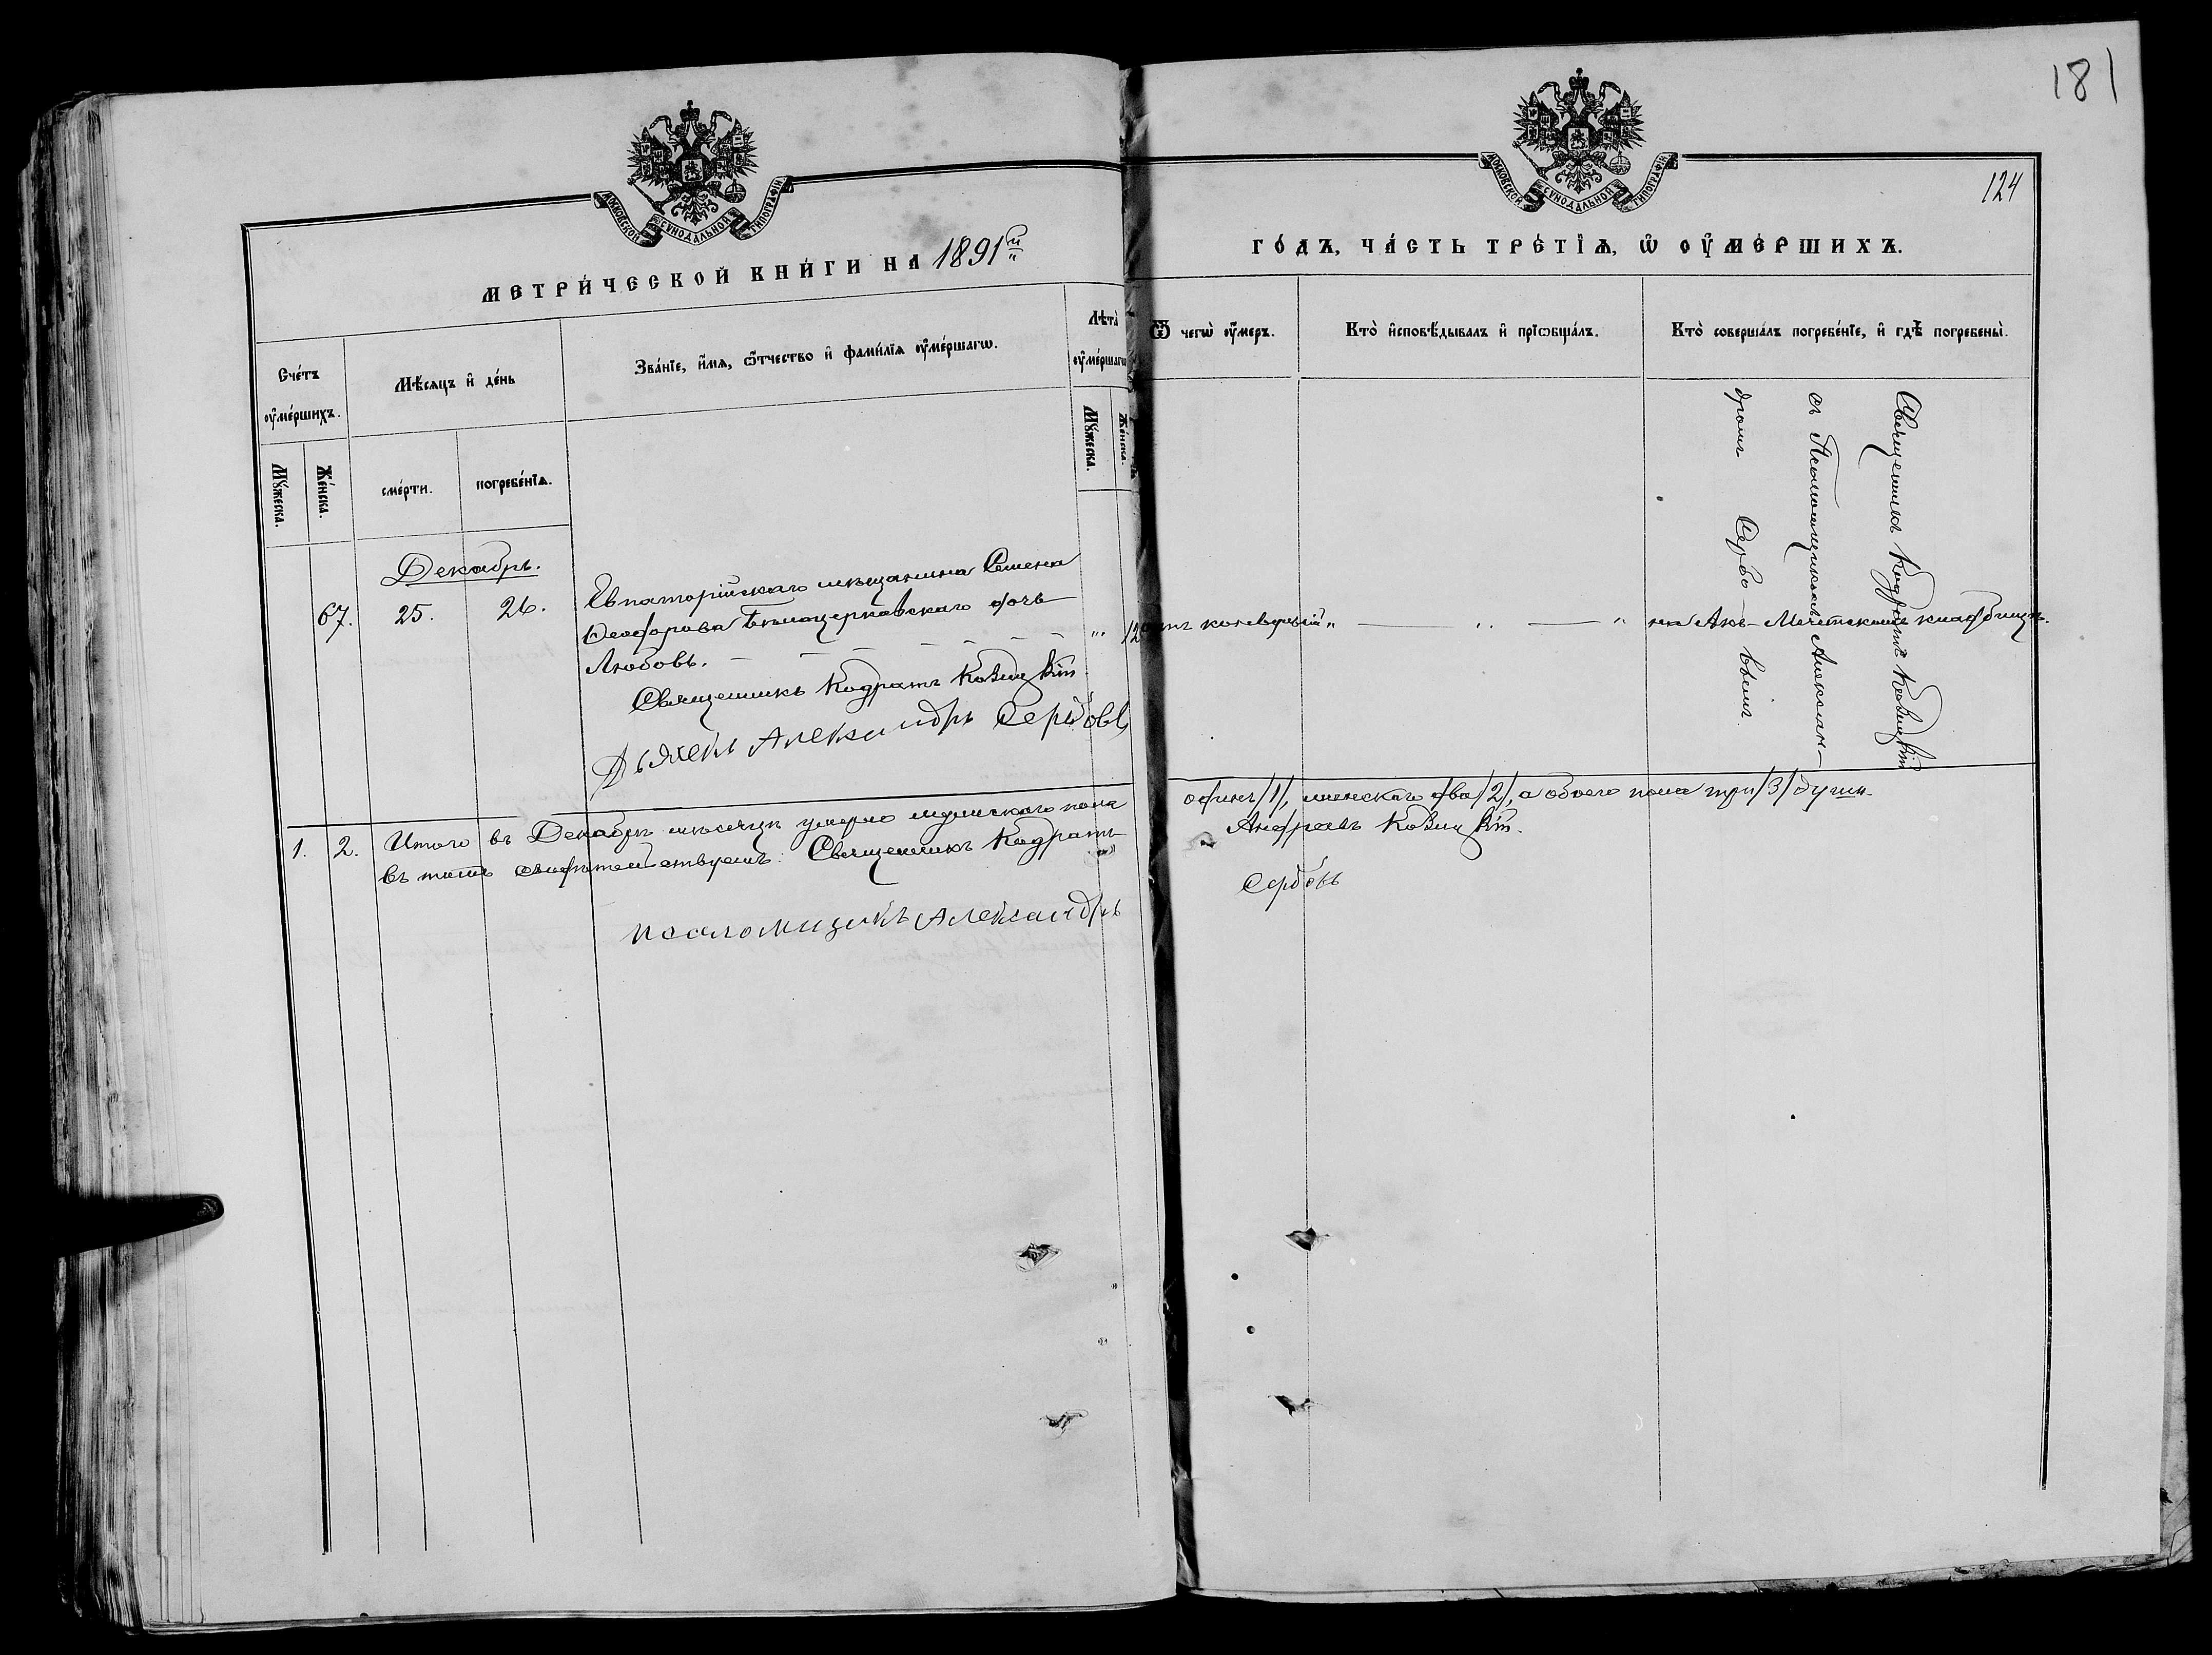 181
124
МОСКОВСКОЙ СѴНОДАЛЬНОЙ ТИПОГРАФІИ
МОСКОВСКОЙ СѴНОДАЛЬНОЙ ТИПОГРАФІИ
МЕТРИ́ЧЕСКОЙ КНИ́ГИ НА 1891й
ГО́ДЪ, ЧА́СТЬ ТРЕ́ТЇѦ, Ѡ҆ ОУ҆МЕ́РШИХЪ.
Сче́тъ оу҆ме́ршихъ.
Мꙋ́жеска.
Же́нска.
Мѣ́сяцъ и҆ де́нь
сме́рти.
погребе́нїѧ.
Зва́нїе, и҆́мѧ, ѻ҆́тчество и҆ фами́лїѧ оу҆ме́ршагѡ.
Лѣ́та оу҆ме́ршагѡ
Мꙋ́жеска.
Же́нска.
Ѿ чегѡ̀ оу҆́меръ.
Кто̀ и҆сповѣ́дывалъ и҆ прїѻбща́лъ.
Кто̀ соверша́лъ погребе́нїе, и҆ гдѣ̀ погребены̀.
Декабрь.
67.
25.
26.
Евпаторійскаго мѣщанина Семена
Ѳеодорова Бѣлоцерковскаго дочь
Любовь.
Священникъ Кодратъ
Дьячекъ Александръ Сербовъ
12
на Акъ-Мечетскомъ кладбищѣ.
Священникъ Кодратъ
съ Псаломщикомъ Алексан-
дромъ Сербовымъ.
1. 2. Итого въ Декабрѣ мѣсяцѣ умерло мужскаго пола
одинъ /1/, женскаго два /2/, а обоего пола три /3/ души.
въ томъ свидѣтельствуемъ: Священникъ Кодратъ
Андреевъ
псаломщикъ Александръ
Сербовъ